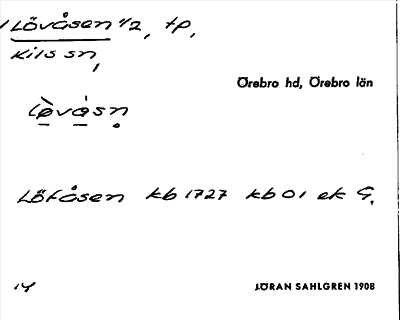 Lövåsen 1/2, tp,
Kils sn,
Örebro hd, Örebro län
lø̀våsn̥
Löfåsen kb 1727 kb 01 ek G.
14
JÖRAN SAHLGREN 1908